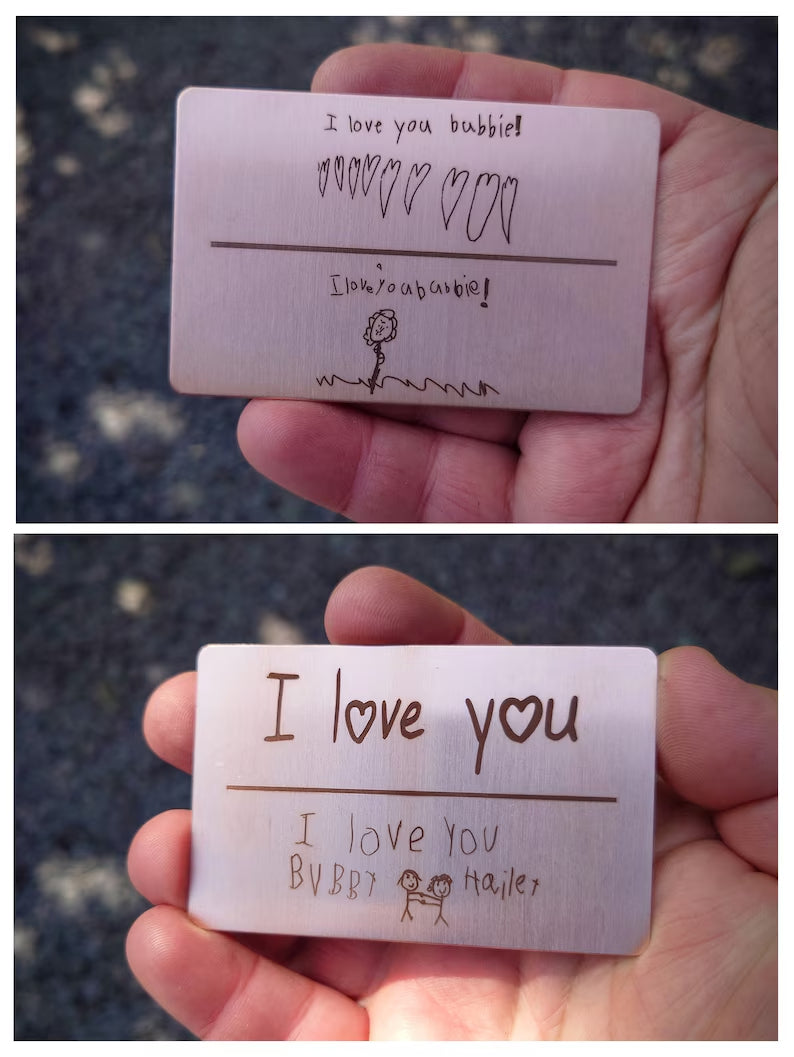 I love you bubbie!
I love you bubbie!
I love you
I love you
BUBBY Hailey